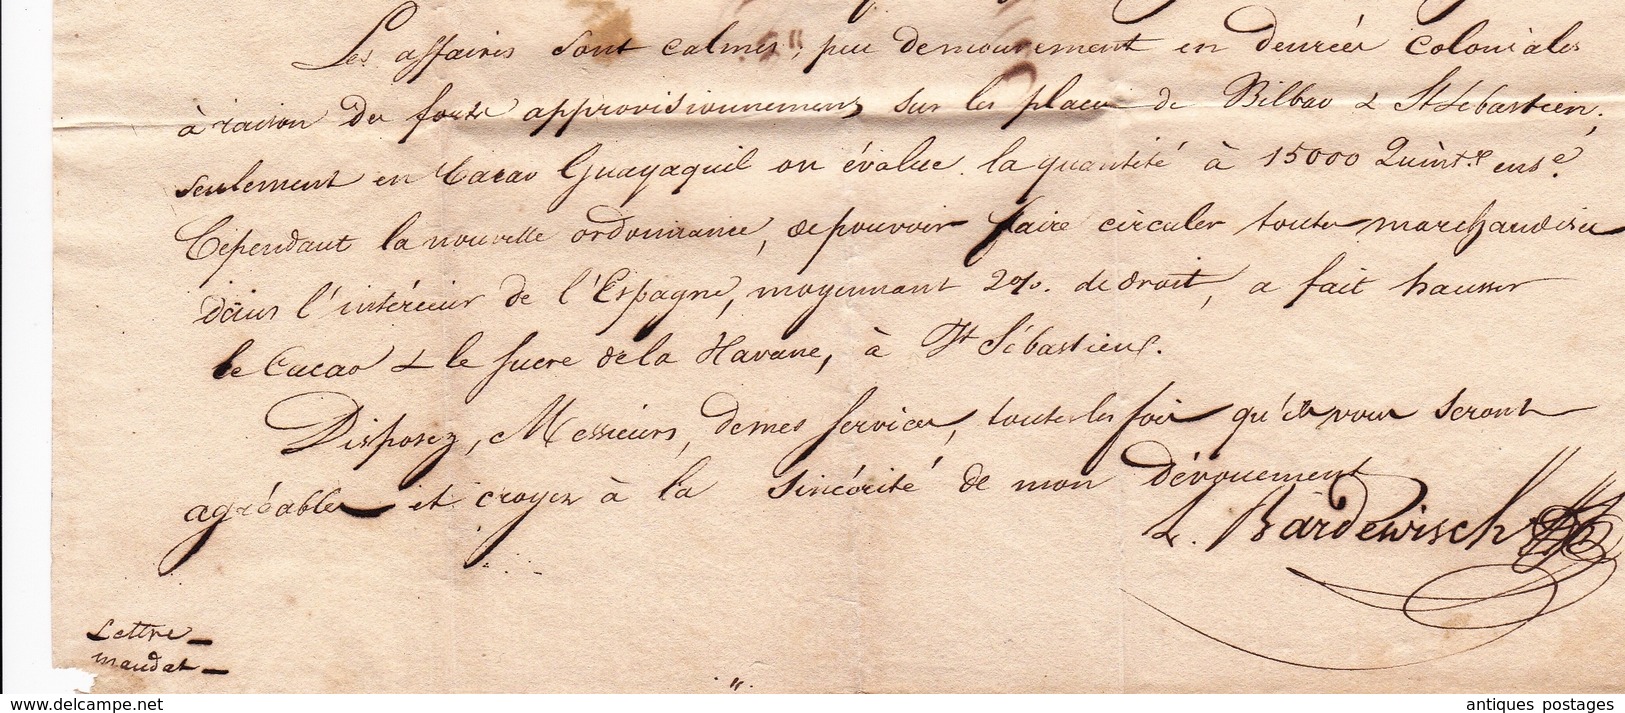 Les affaires sont calmes, peu de mouvement en denrées coloniales
à raison des forts approvisionnemens sur les places de Bilbao & St Sébastien;
seulement en Cacao Guayaquil on évalue la quantité à 15000 Quint.x ens.e
Cependant la nouvelle ordonnance, de pouvoir faire circuler toutes marchandises
dans l'intérieur de l'Espagne, moyennant 2%. de droit, a fait hausser
le Cacao & le sucre de la Havane, à St Sébastien.
Disposez, Messieurs, de mes services, toutes les fois qu'ils vous seront
agréables et croyez à la sincérité de mon dévouement
L. Bardewisch
Lettre
mandat
www.delcampe.net
antiques postages